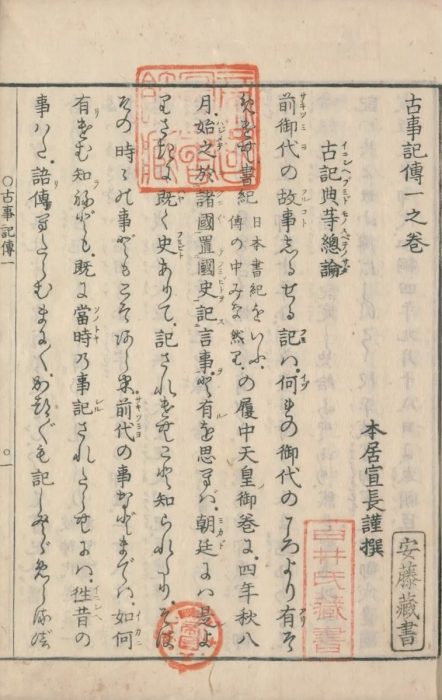 古事記傳一之卷
本居宣長謹撰
古記典等總論
前御代の故事しるせる記は、何れの御代のころより有そ
めけむ、書紀 日本書紀をいふ、傳の中みな然り、 の履中天皇御卷に、四年秋八
月、始之於諸國置國史記言事と有を思へば、朝廷には是よ
りさきに既く史ありて、記されけむこと知られたり、そは
その時々の事どもこそあらめ、前代の事などまでは、如何
有けむ知ねども、既に當時の事記されたらむには、往昔の
事はた、語傳へたらむまゝに、かつ〴〵も記し
○古事記傳一
○一
安藤藏書
白井氏藏書